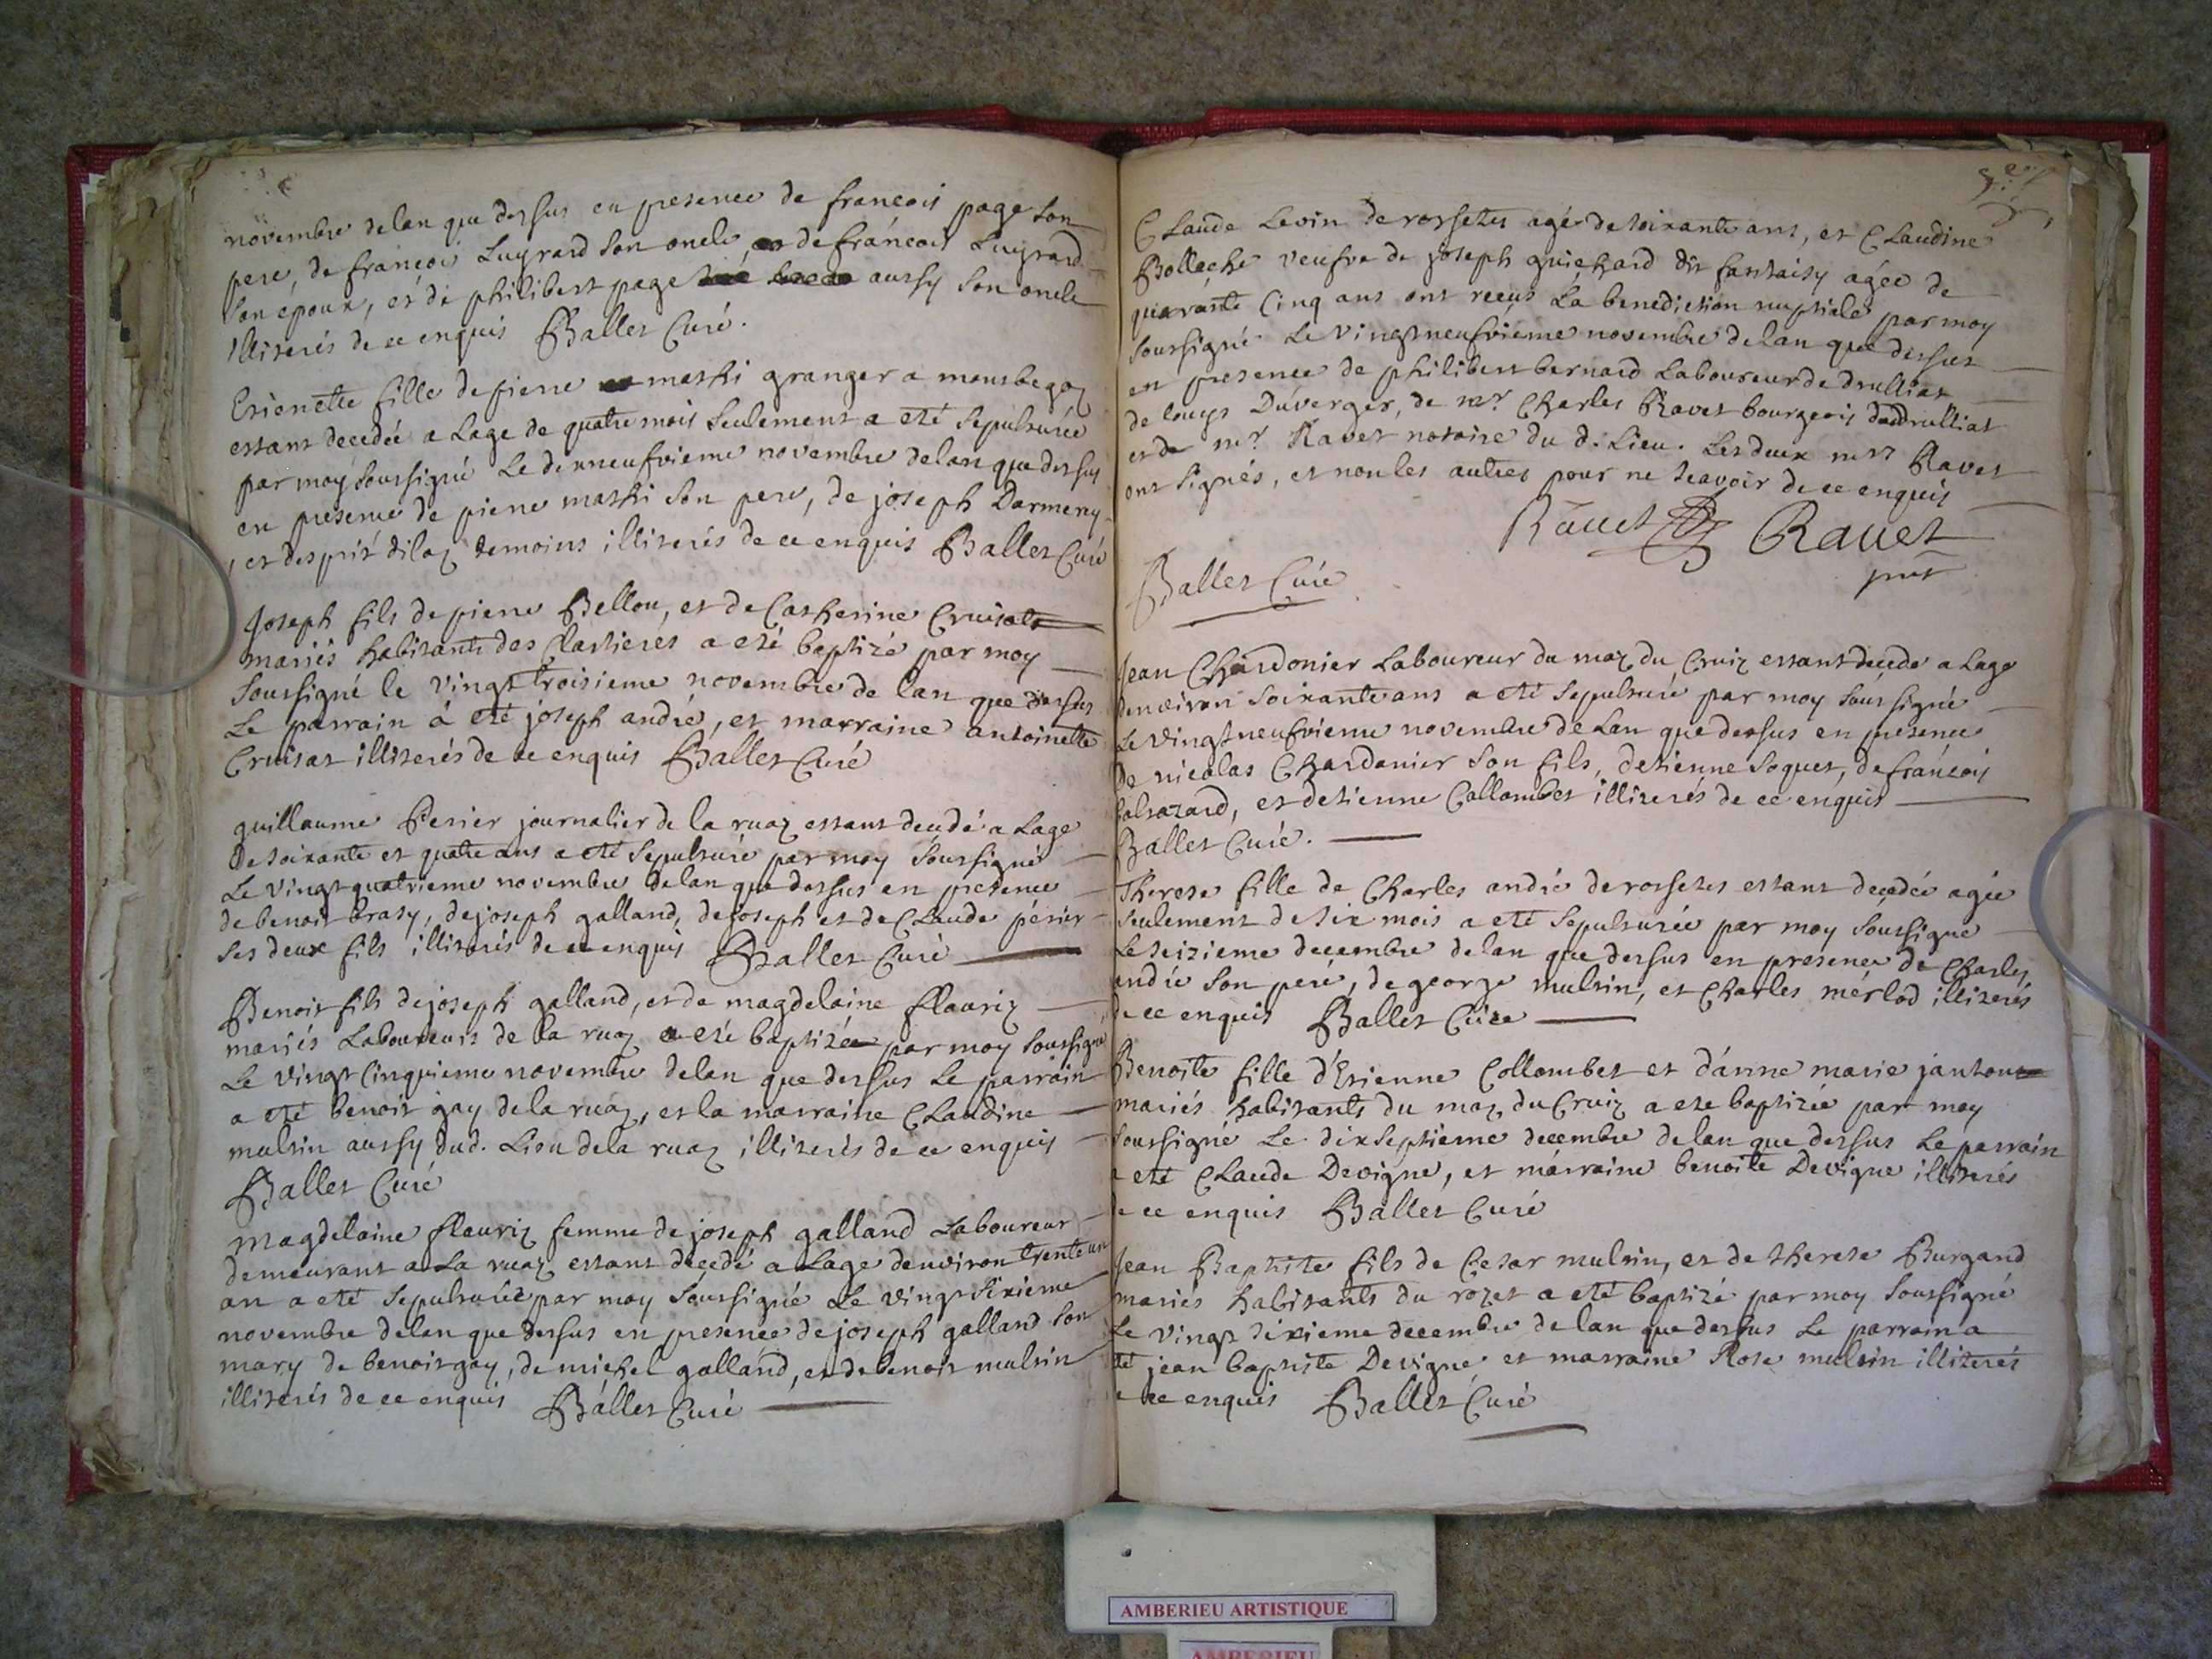 novembre de lan que dessus en presence de francois page son
pere, de françois Luyrard son oncle, de francois Luyrard
son epoux, et de philibert page aussy son oncle
illiterés de ce enquis Ballet Curé.
Etienette fille de pierre mathi granger a montbegoz
estant decedée a Lage de quatre mois seulement a eté sepulturée
par moy soussigné Le dixneufvieme novembre de lan que dessus
en presence de pierre mathi son pere, de joseph Darmeny
et desprit dilaz temoins illiterés de ce enquis Ballet Curé
Joseph fils de pierre Bellou, et de Catherine Cruisat
mariés habitants des Clartieres a eté baptizé par moy
soussigné le vingt troisieme novembre de lan que dessus
Le parrain à eté joseph andré, et marraine antoinette
Cruisat illiterés de ce enquis Ballet Curé
guillaume Perier journalier de la ruaz estant decedé a Lage
de soixante et quatre ans a eté sepulturé par moy soussigné
Le vingt quatrieme novembre de lan que dessus en presence
de benoit brasy, de joseph galland, de joseph et de Claude périer
ses deux fils illiterés de ce enquis Ballet Curé
Benoit fils de joseph galland, et de magdelaine fleuriz
mariés Laboureurs de la ruaz a eté baptizé par moy soussigné
Le vingt Cinquieme novembre de lan que dessus Le parrain
a eté benoit gay de la ruaz, et la marraine Claudine
mulsin aussy dud. Lieu de la ruaz illiterés de ce enquis
Ballet Curé
Magdelaine fleuriz femme de joseph galland Laboureur
demeurant a La ruaz estant decedé a Lage denviron trente un
an a eté sepulturée par moy soussigné Le vingt sixieme
novembre de lan que dessus en presence de joseph galland son
mary de benoit gay, de michel galland, et de benoit mulsin
illiterés de ce enquis Ballet Curé
Claude Levin de rossetes agé de soixante ans, et Claudine
Bolleche veufve de joseph guichard dit fantaisy agée de
quarante Cinq ans ont reçus La benediction nuptiale par moy
soussigné Le vingtneufvieme novembre de lan que dessus
en presence de philibert bernard Laboureur de druilliat
de louys Duverger, de mr. Charles Ravet bourgeois de druilliat
et de mr. Ravet notaire du d. Lieu. Les deux mrs Ravet
ont signés, et non les autres pour ne scavoir de ce enquis
Ravet Ravet
Ballet Curé
Jean Chardonier Laboureur du maz du Cruiz estant decede a Lage
denviron soixante ans a eté sepulturé par moy soussigné
Le vingt neufvieme novembre de Lan que dessus en presence
De nicolas Chardonier son fils, detienne soquet, de françois
balthazard, et detienne Collombet illiterés de ce enquis
Ballet Curé.
Therese fille de Charles andré de rossetes estant decedée agée
seulement de six mois a eté sepulturée par moy soussigné
Le seizieme decembre de lan que dessus en presence de Charles
andré son peré, de george mulsin, et Charles merlod illiterés
de ce enquis Ballet Curé
Benoite fille d'Etienne Collombet et d'anne marie janton
mariés habitants du maz du Cruiz a ete baptizée par moy
soussigné Le dixseptieme decembre de lan que dessus Le parrain
a eté Claude Devigne, et marraine benoite Devigne illiterés
de ce enquis Ballet Curé
Jean Baptiste fils de Cesar mulsin, et de therese Burgand
mariés habitants du rozet a eté baptizé par moy soussigné
Le vingt sixieme decembre de lan que dessus Le parrain a
eté jean baptiste Devigne et marraine Rose mulsin illiterés
de ce enquis Ballet Curé
AMBERIEU ARTISTIQUE
AMBERIEU